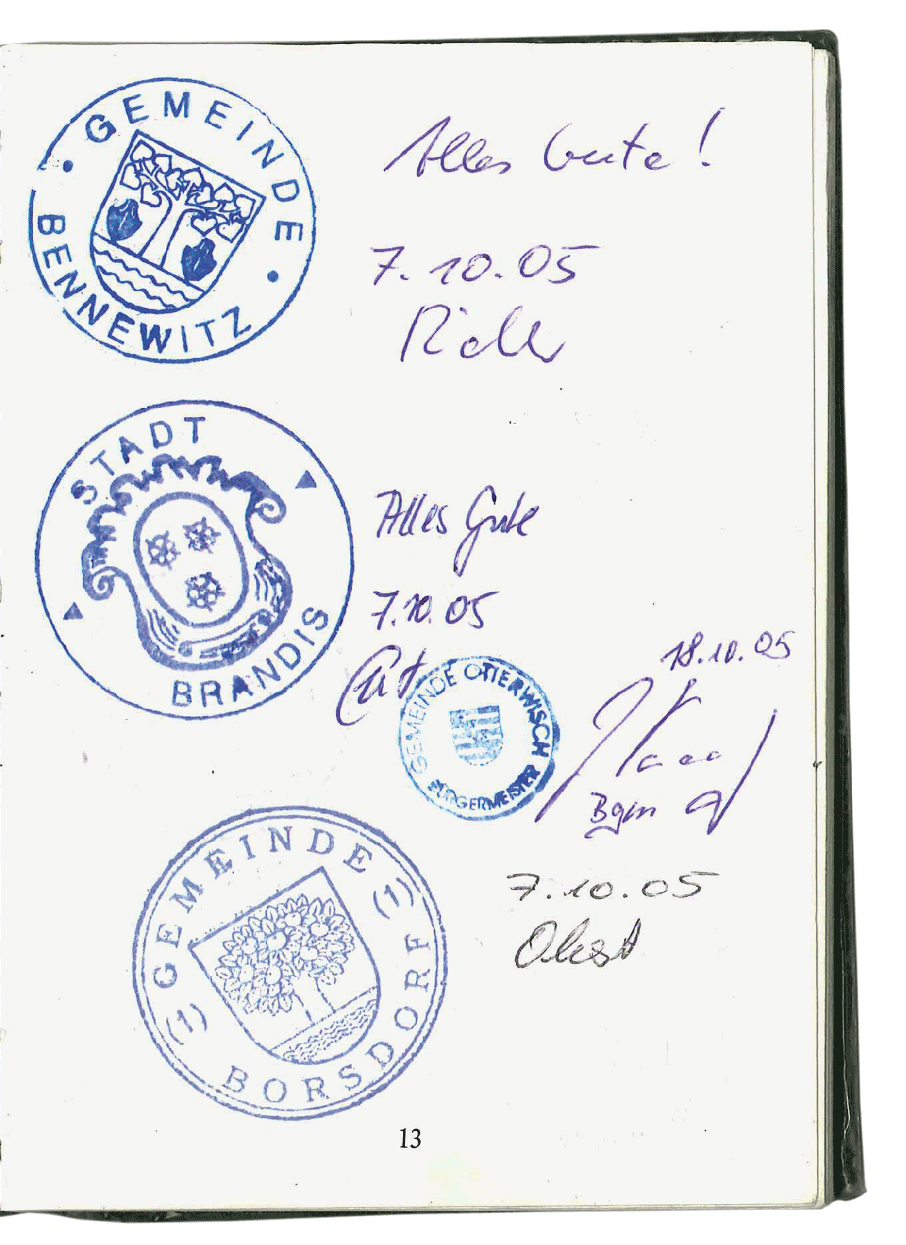 GEMEINDE
BENNEWITZ
Alles Gute!
7.10.05
STADT
BRANDIS
Alles Gute
7.10.05
GEMEINDE OTTERWISCH
BÜRGERMEISTER
18.10.05
Bgm
GEMEINDE (1)
BORSDORF (1)
7.10.05
13